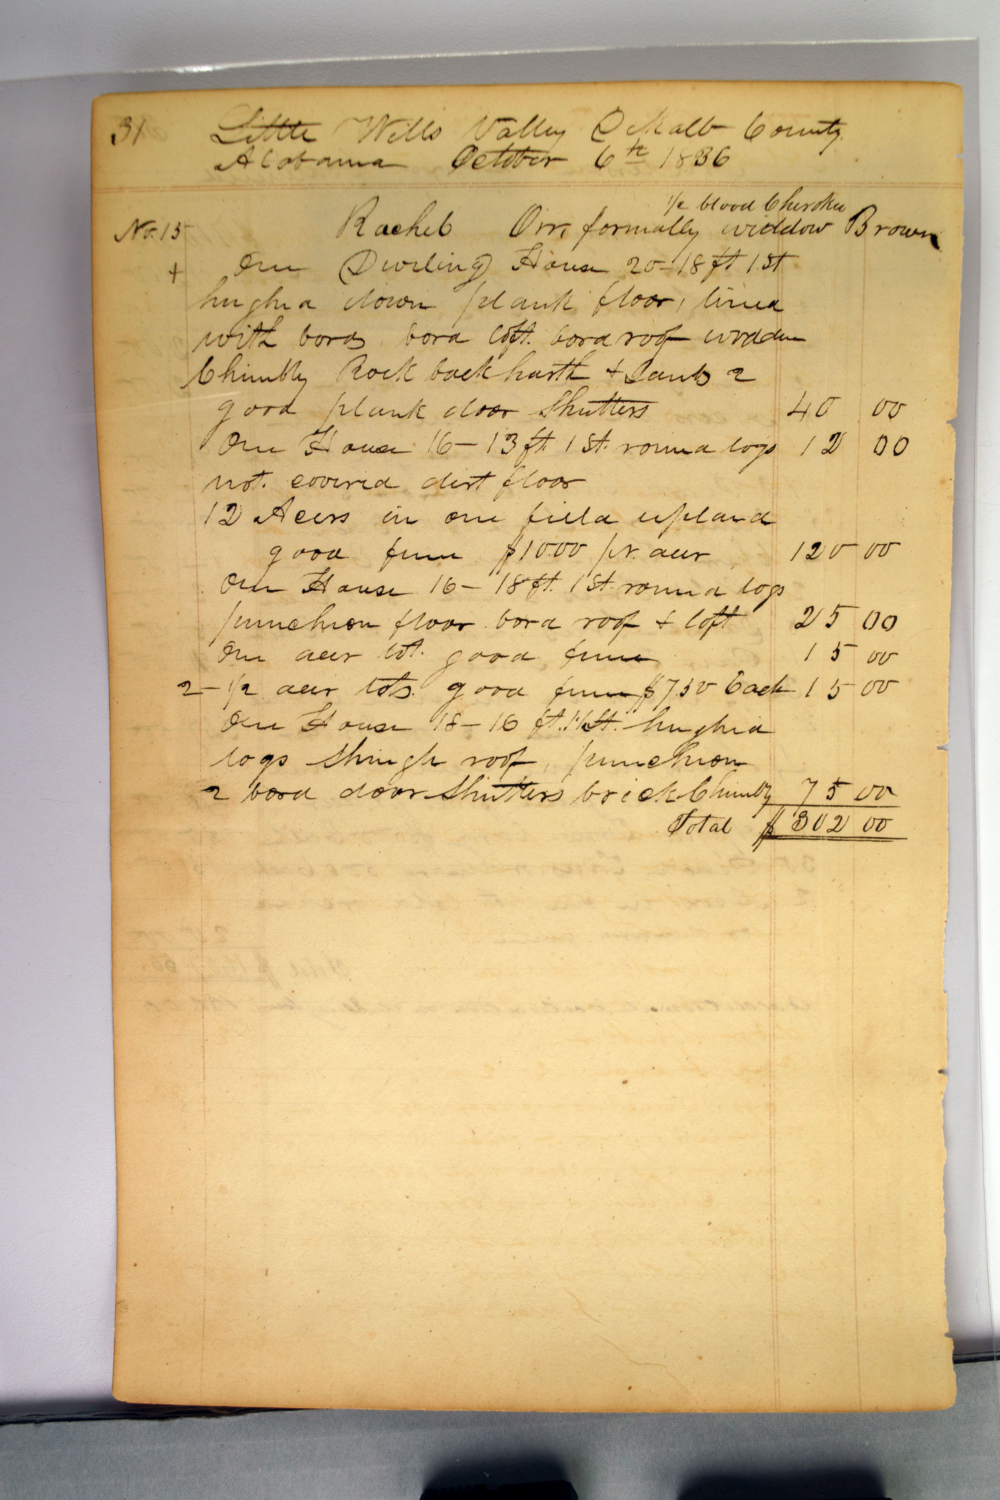 31 Little Wills Valley DeKalb County
Alabama October 6th 1836
1/2 blood Cherokee
No. 15 Rachel Orr, formally widdow Brown
+ One Dweling House 20-18 ft 1 St
hughed down plank floor, lined
with bords bord loft. bord roof wooden
Chimbly Rock back harth & Jambs 2
good plank door Shutters 40 00
One House 16-13 ft. 1 St. round logs 12 00
not. covered dirt floor
12 Acers in one field upland
good fence $10.00 pr. acer 120 00
One House 16-18 ft. 1 St. round logs
punchion floor bord roof & loft 25 00
One acer lot. good fence 15 00
2-1/2 acer lots. good fence $7.50 Each 15 00
One House 18-16 ft. 1 1/2 St. hughed
logs Shingle roof, punchion
2 bord door Shutters brick Chimbly 75 00
Total $302 00